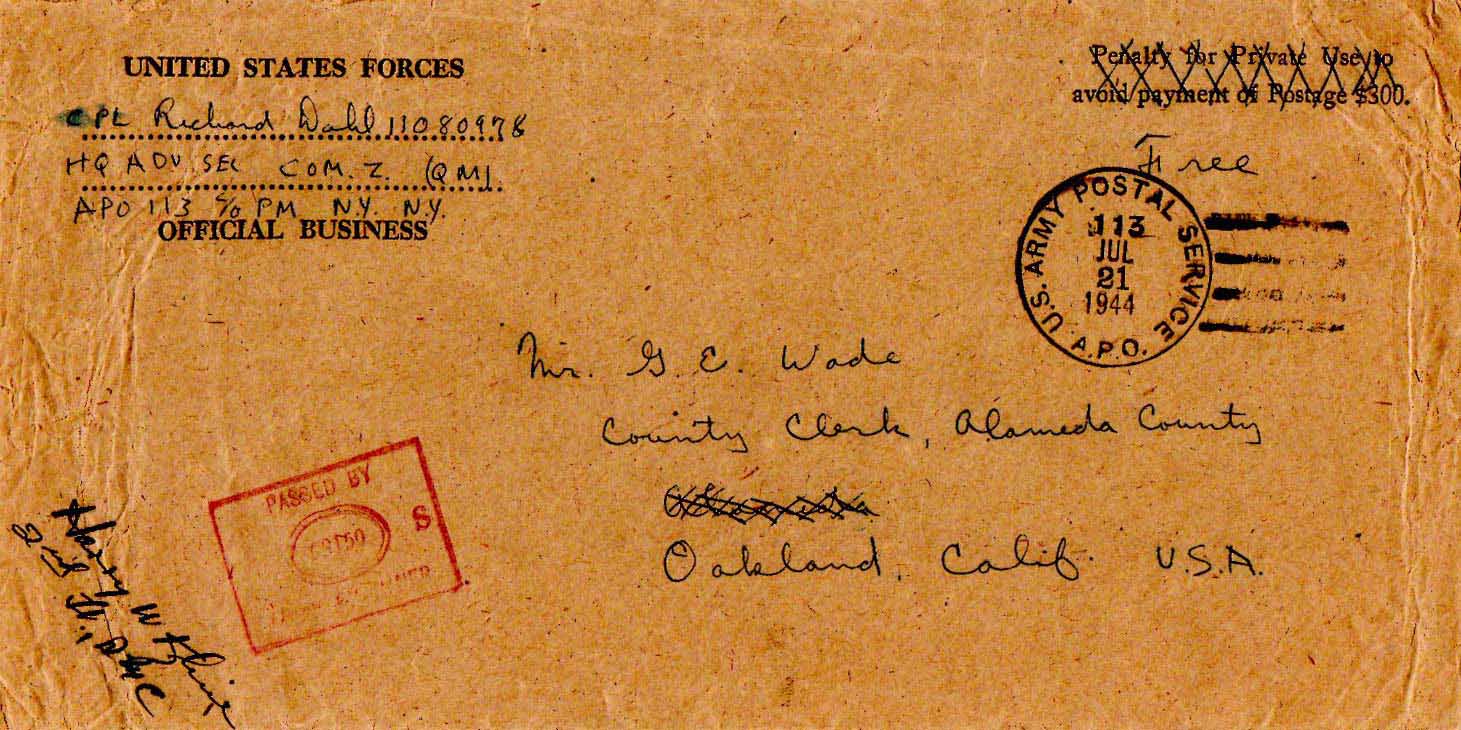 UNITED STATES FORCES
CPL Richard Dahl 11080978
HQ ADV SEC COM. Z. (QM)
APO 113 c/o PM N.Y. N.Y.
OFFICIAL BUSINESS
Penalty for Private Use to
avoid payment of Postage $300.
Free
U.S. ARMY POSTAL SERVICE
113
JUL
21
1944
A.P.O.
Mr. G. E. Wade
County Clerk, Alameda County
Oakland, Calif. U.S.A.
PASSED BY
S
Harry W Kline
2nd Lt. QMC